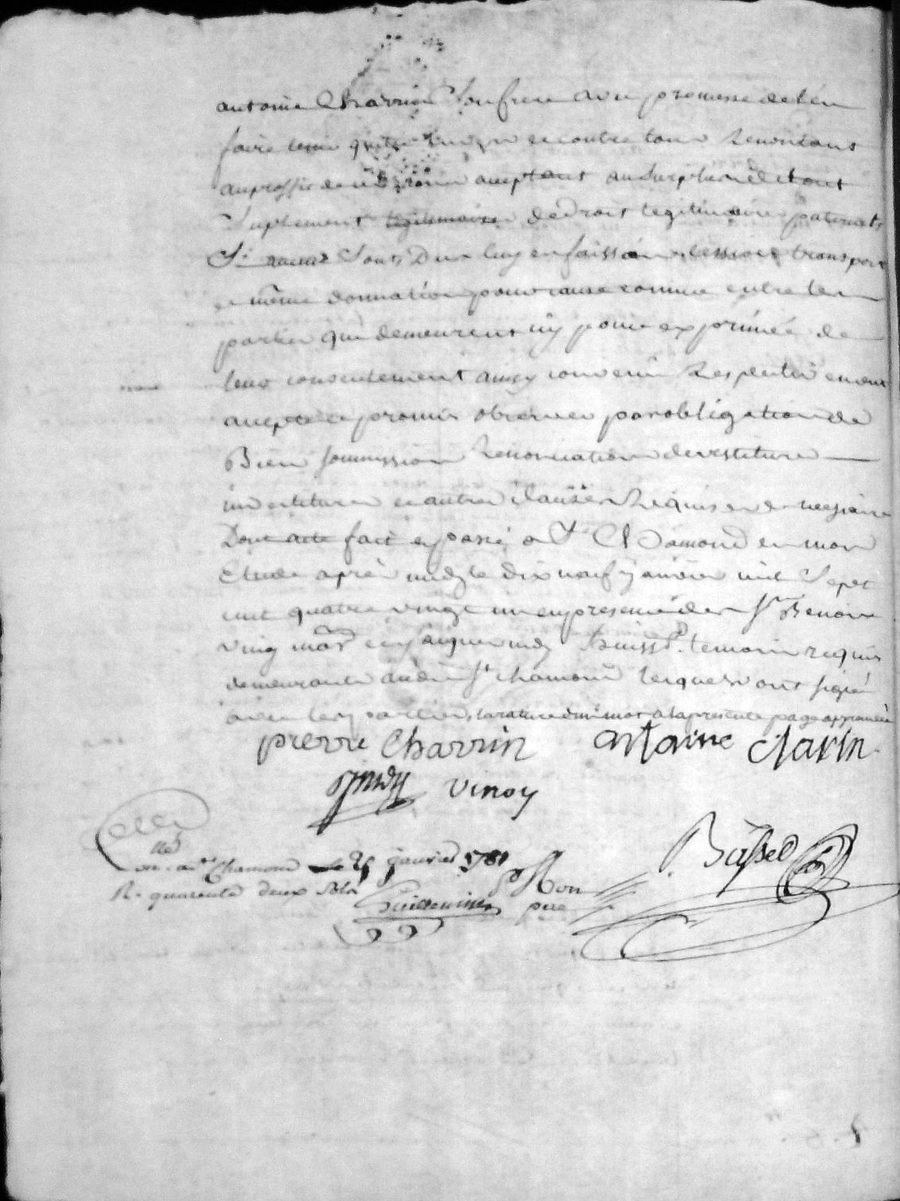 antoine Charrin Son frere avec promesse de l'en
faire tenir quitte envers et contre tous Renoncans
au proffit de acceptant au Surplus de tout
Suplement legitimaire de droits legitimaire paternels
Sy aucuns Sont Dus luy en faissan cession transport
et même donnation pour cause connue entre les
parties qui demeurent icy pour exprimée de
leur consentement ainsy convenu Respectivement
accepté et promis observer par obligation de
Bien soumission Renonciation devestiture
investiture et autres clauses Requises et necessaire
Dont acte fait et passé a St Chamond en mon
Etude après midy le dix neuf janvier mil Sept
cent quatre vingt un en presence de Sr Benoit
vinoy temoins requis
demeurants audit St chamond lesquels ont signé
avec les parties, la rature d'un mot a la presente page approuvée
pierre Charrin antoine Charin
vinoy
Basset
con. a St Chamond le 25 janvier 1781
R. quarante deux sols Guillemin pr Mon
pere